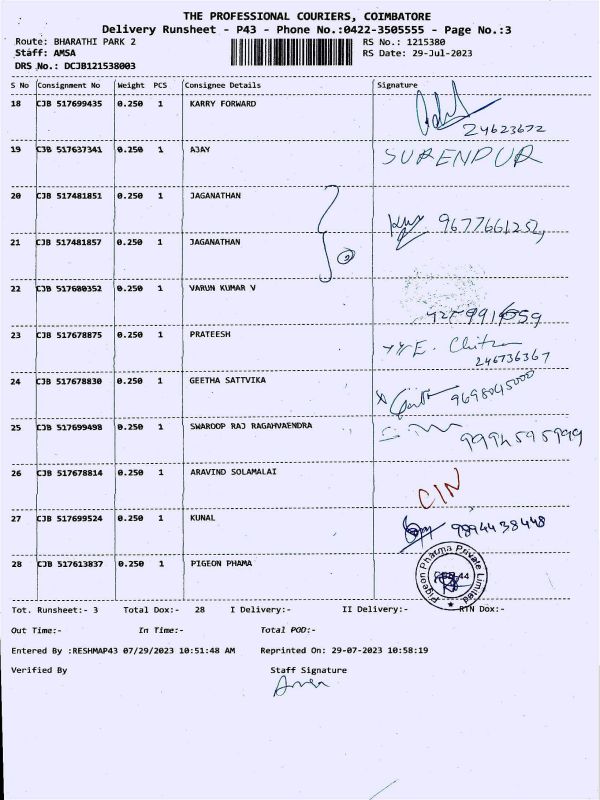 THE PROFESSIONAL COURIERS, COIMBATORE
Delivery Runsheet - P43 - Phone No.:0422-3505555 - Page No.:3
Route: BHARATHI PARK 2 RS No.: 1215380
Staff: AMSA RS Date: 29-Jul-2023
DRS No.: DCJB121538003
S No Consignment No Weight PCS Consignee Details Signature
18 CJB 517699435 0.250 1 KARRY FORWARD
24623672
19 CJB 517637341 0.250 1 AJAY SURENDUR
20 CJB 517481851 0.250 1 JAGANATHAN
9677661252
21 CJB 517481857 0.250 1 JAGANATHAN
2
22 CJB 517600352 0.250 1 VARUN KUMAR V
23 CJB 517678875 0.250 1 PRATEESH E. Chitra
246736367
24 CJB 517678830 0.250 1 GEETHA SATTVIKA
9698045000
25 CJB 517699498 0.250 1 SWAROOP RAJ RAGAHVAENDRA
9994595999
26 CJB 517678814 0.250 1 ARAVIND SOLAMALAI
CIN
27 CJB 517699524 0.250 1 KUNAL 9894438448
28 CJB 517613837 0.250 1 PIGEON PHAMA
Pigeon Pharma Private Limited
Tot. Runsheet:- 3 Total Dox:- 28 I Delivery:- II Delivery:- RTN Dox:-
Out Time:- In Time:- Total POD:-
Entered By :RESHMAP43 07/29/2023 10:51:48 AM Reprinted On: 29-07-2023 10:58:19
Verified By Staff Signature